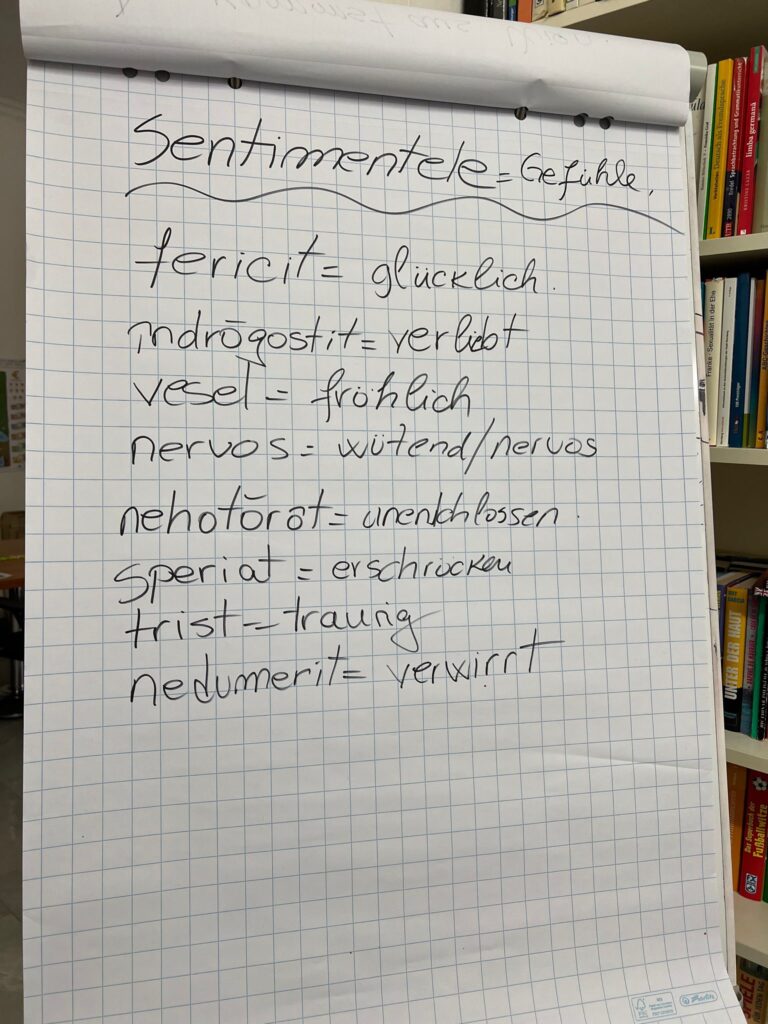 Sentimentele = Gefühle.
fericit = glücklich.
îndrăgostit = verliebt
vesel = fröhlich
nervos = wütend/nervos
nehotărât = unenchlossen.
speriat = erschrocken
trist = traurig
nedumerit = verwirrt
limba germană
UNTER DER HAUT
Fußballwitze